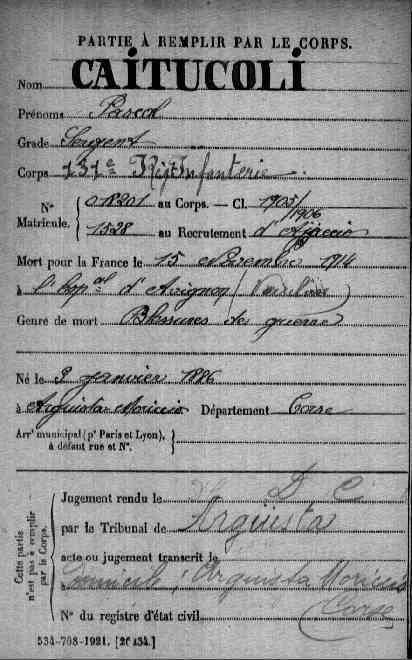 PARTIE À REMPLIR PAR LE CORPS.
Nom CAITUCOLI
Prénoms Pascal
Grade Sergent
Corps 131e Rég. Infanterie
N° Matricule. { 018201 au Corps. — Cl. 1905/1906
1528 au Recrutement d'Ajaccio
Mort pour la France le 15 Novembre 1914
à l'hop.al d' Avignon (Vaucluse)
Genre de mort Blessures de guerre
Né le 9 janvier 1886
à Arguista Moriccio Département Corse
Arr' municipal (p' Paris et Lyon), à défaut rue et N°. }
Cette partie n'est pas à remplir par le Corps.
Jugement rendu le D C
par le Tribunal de Arguista
acte ou jugement transcrit le
Domicile, Arguista Moriccio
(Corse)
N° du registre d'état civil
534-708-1921. [26434.]